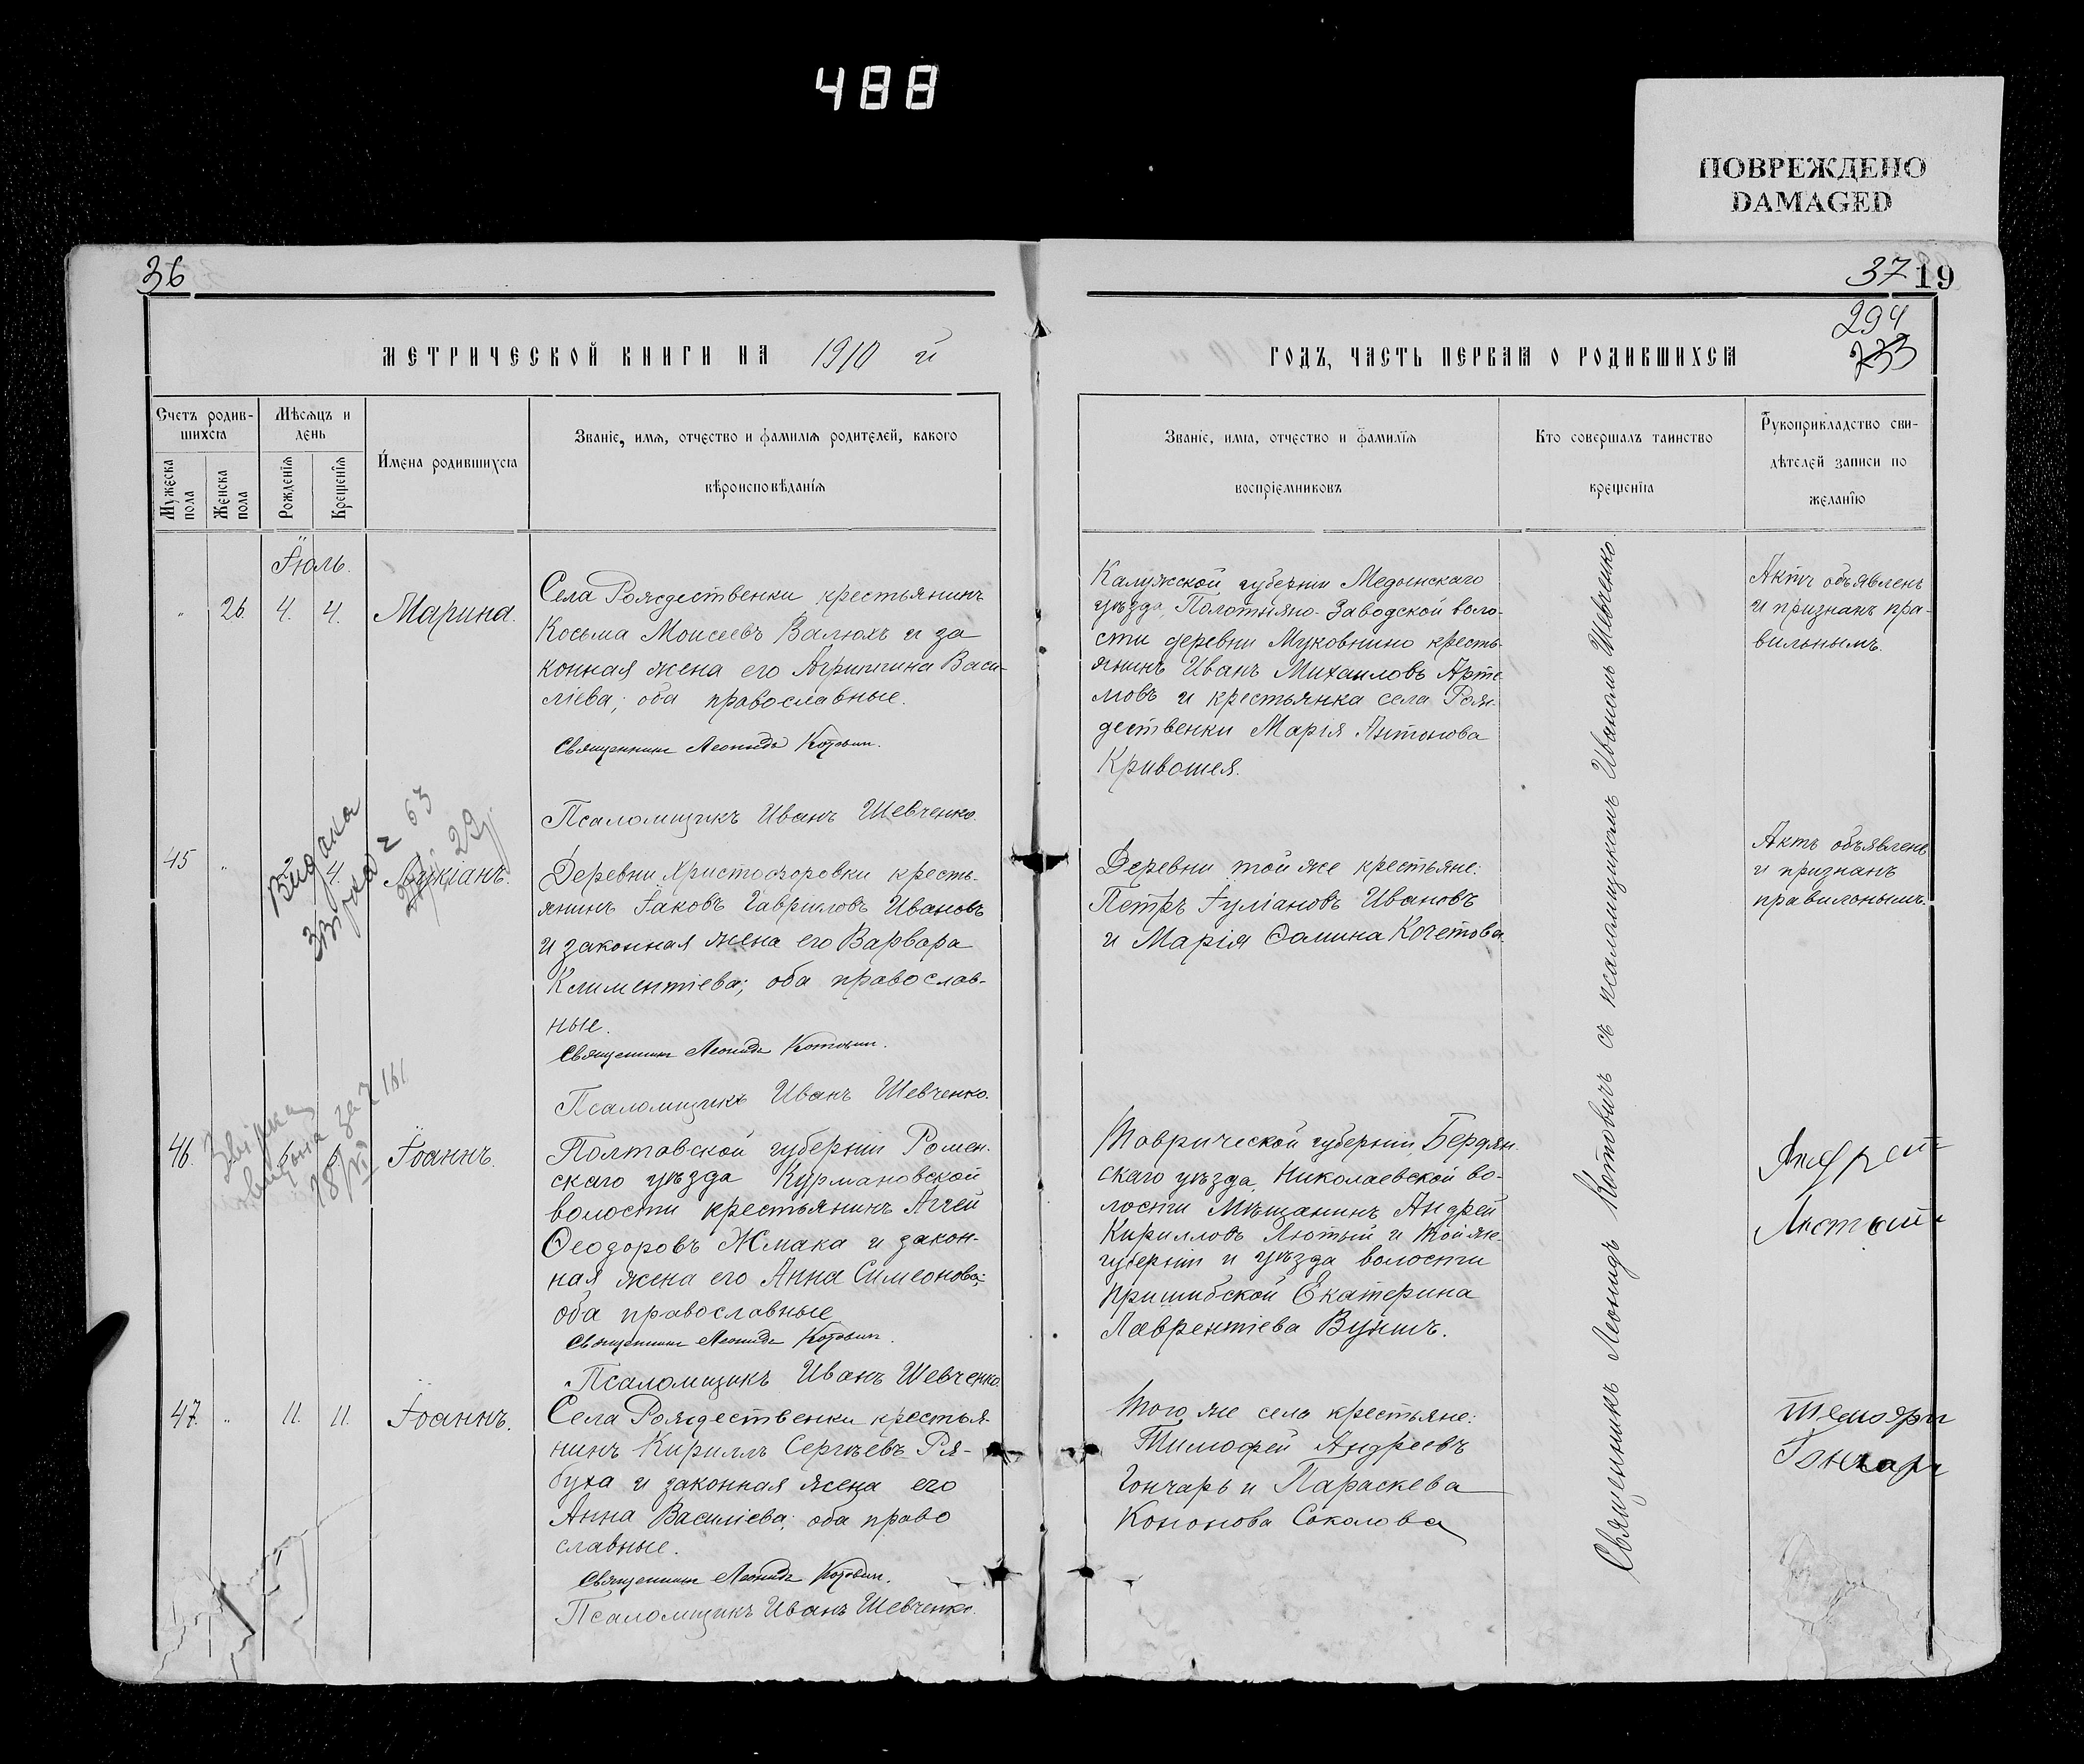 488
ПОВРЕЖДЕНО
DAMAGED
36
МЕТРИЧЕСКОЙ КНИГИ НА 1910 й
Счетъ родив-
шихся
Мужеска
пола
Женска
пола
Мѣсяцъ и
день
Рожденія
Крещенія
Имена родившихся
Званіе, имя, отчество и фамилія родителей, какого
вѣроисповѣданія
Іюль.
" 26. 4. 4. Марина.
Села Рождественки крестьянинъ
Косьма Моисеевъ Валюхъ и за
конная жена его Агриппина Васи-
ліева; оба православные.
Священникъ Леонидъ Котовичъ.
Псаломщикъ Иванъ Шевченко.
45 " 4. Лукіанъ.
Видана
63
29
Деревни Христофоровки кресть-
янинъ Іаковъ Гавриловъ Ивановъ
и законная жена его Варвара
Климентіева; оба православ-
ные.
Священникъ Леонидъ Котовичъ.
Псаломщикъ Иванъ Шевченко.
46. Іоаннъ.
18/VI
Полтавской губерніи Ромен-
скаго уѣзда Курмановской
волости крестьянинъ Аггей
Ѳеодоровъ Жмака и закон-
ная жена его Анна Симеонова;
оба православные
Священникъ Леонидъ Котовичъ.
Псаломщикъ Иванъ Шевченко.
47. " 11. 11. Іоаннъ.
Села Рождественки крестья-
нинъ Кириллъ Сергѣевъ Ря-
буха и законная жена его
Анна Василіева; оба право
славные.
Священникъ Леонидъ Котовичъ.
Псаломщикъ Иванъ Шевченко.
37 19
294
233
ГОДЪ, ЧАСТЬ ПЕРВАЯ О РОДИВШИХСЯ
Званіе, имя, отчество и фамилія
воспріемниковъ
Кто совершалъ таинство
крещенія
Рукоприкладство сви-
дѣтелей записи по
желанію
Калужской губерніи Медынскаго
уѣзда, Полотняно-Заводской воло-
сти деревни Муковнино кресть-
янинъ Иванъ Михаиловъ Арте
мовъ и крестьянка села Рож-
дественки Марія Антонова
Кривошея.
Актъ объявленъ
и признанъ пра-
вильнымъ.
Деревни той же крестьяне:
Петръ Іуліановъ Ивановъ
и Марія Ѳомина Кочетова.
Актъ объявленъ
и признанъ
правильнымъ.
Таврической губерніи, Бердян-
скаго уѣзда, Николаевской во-
лости Мѣщанинъ Андрей
Кирилловъ Лютый и той же
губерніи и уѣзда волости
Пришибской Екатерина
Лаврентіева Вуншъ.
Андрей
Лютый
Того же села крестьяне:
Тимофей Андреевъ
Гончаръ и Параскева
Кононова Соколова
Гончаръ
Священникъ Леонидъ Котовичъ съ псаломщикомъ Иваномъ Шевченко.